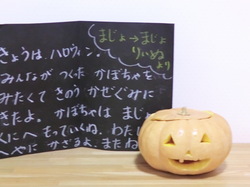 まじょ→まじょ
りいぬ
より
きょうは、ハロウィン。
みんなが つくた かぼちゃを
みたくて きのう かぜぐみに
きたよ。 かぼちゃは まじょ
くにへ もっていくね。わた
へやに かざるよ。またね